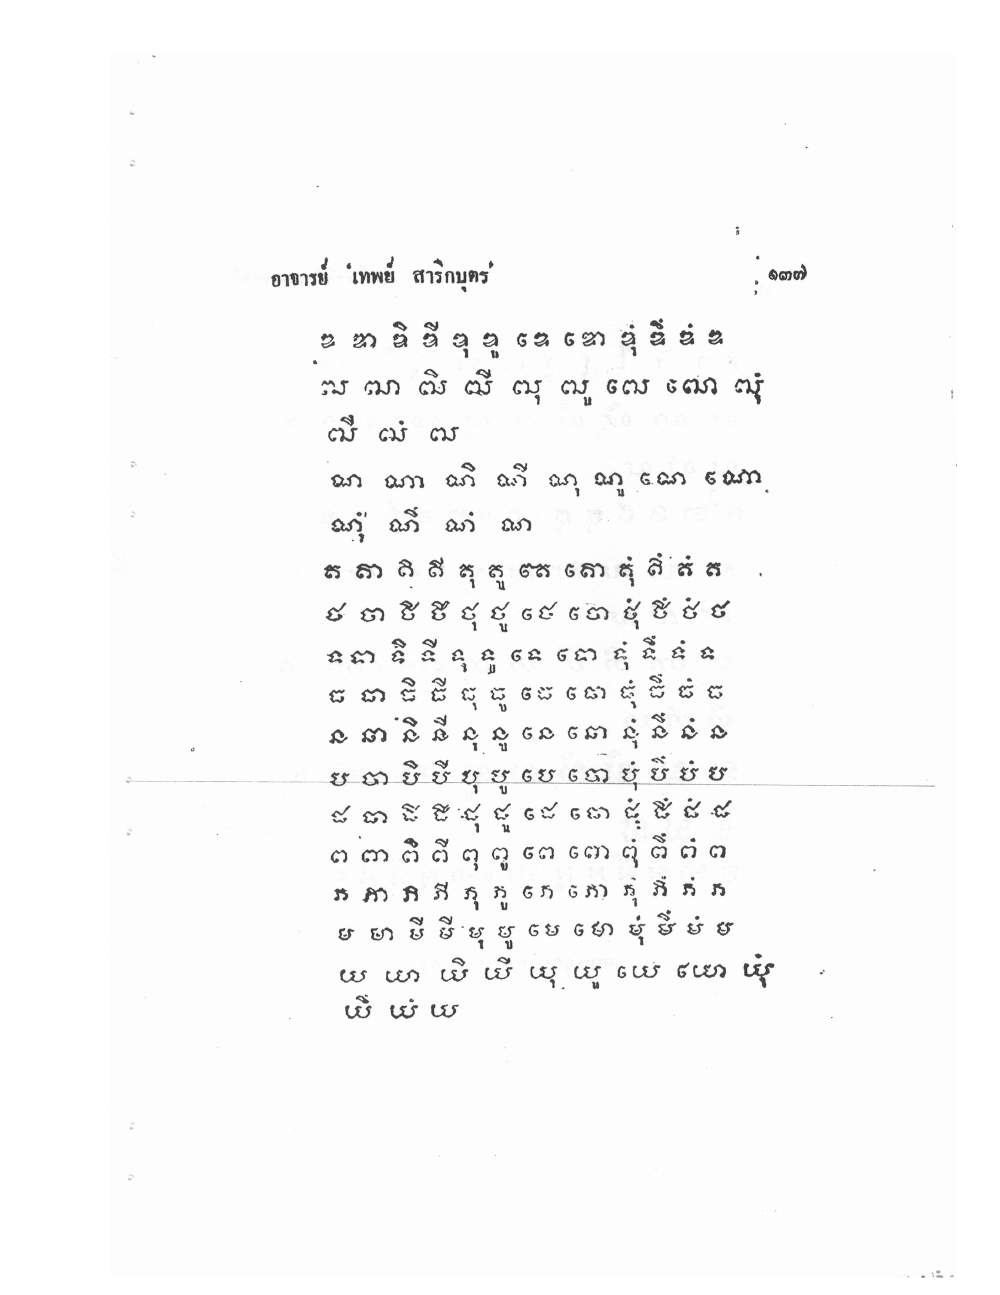 อาจารย์ "เทพย์ สาริกบุตร" ๑๓๗
ឌ ឌា ឌិ ឌី ឌុ ឌូ ឌេ ឌោ ឌុំ ឌឹ ឌំ ឌ
ឍ ឍា ឍិ ឍី ឍុ ឍូ ឍេ ឍោ ឍុំ
ឍឹ ឍំ ឍ
ណ ណា ណិ ណី ណុ ណូ ណេ ណោ
ណុំ ណឹ ណំ ណ
ត តា តិ តី តុ តូ តេ តោ តុំ តឹ តំ ត
ថ ថា ថិ ថី ថុ ថូ ថេ ថោ ថុំ ថឹ ថំ ថ
ទ ទា ទិ ទី ទុ ទូ ទេ ទោ ទុំ ទឹ ទំ ទ
ធ ធា ធិ ធី ធុ ធូ ធេ ធោ ធុំ ធឹ ធំ ធ
ន នា និ នី នុ នូ នេ នោ នុំ នឹ នំ ន
ប បា បិ បី បុ បូ បេ បោ បុំ បឹ បំ ប
ផ ផា ផិ ផី ផុ ផូ ផេ ផោ ផុំ ផឹ ផំ ផ
ព ពា ពិ ពី ពុ ពូ ពេ ពោ ពុំ ពឹ ពំ ព
ភ ភា ភិ ភី ភុ ភូ ភេ ភោ ភុំ ភឹ ភំ ភ
ម មា មិ មី មុ មូ មេ មោ មុំ មឹ មំ ម
យ យា យិ យី យុ យូ យេ យោ យុំ
យឹ យំ យ